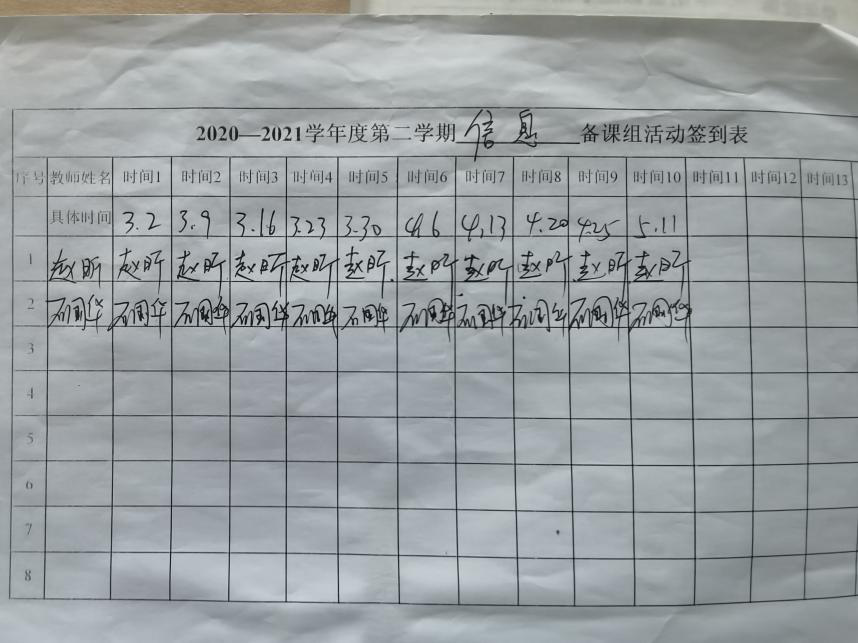 2020—2021学年度第二学期 信息 备课组活动签到表
序号 教师姓名 时间1 时间2 时间3 时间4 时间5 时间6 时间7 时间8 时间9 时间10 时间11 时间12 时间13
具体时间 3.2 3.9 3.16 3.23 3.30 4.6 4.13 4.20 4.25 5.11
1 赵昕 赵昕 赵昕 赵昕 赵昕 赵昕 赵昕 赵昕 赵昕 赵昕 赵昕
2 石国华 石国华 石国华 石国华 石国华 石国华 石国华 石国华 石国华 石国华 石国华
3
4
5
6
7
8